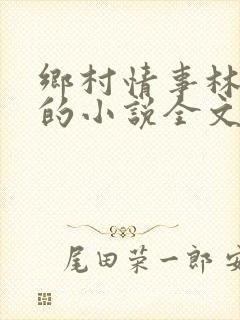 鄉村情事林
的小說全文
尾田荣一郎 安